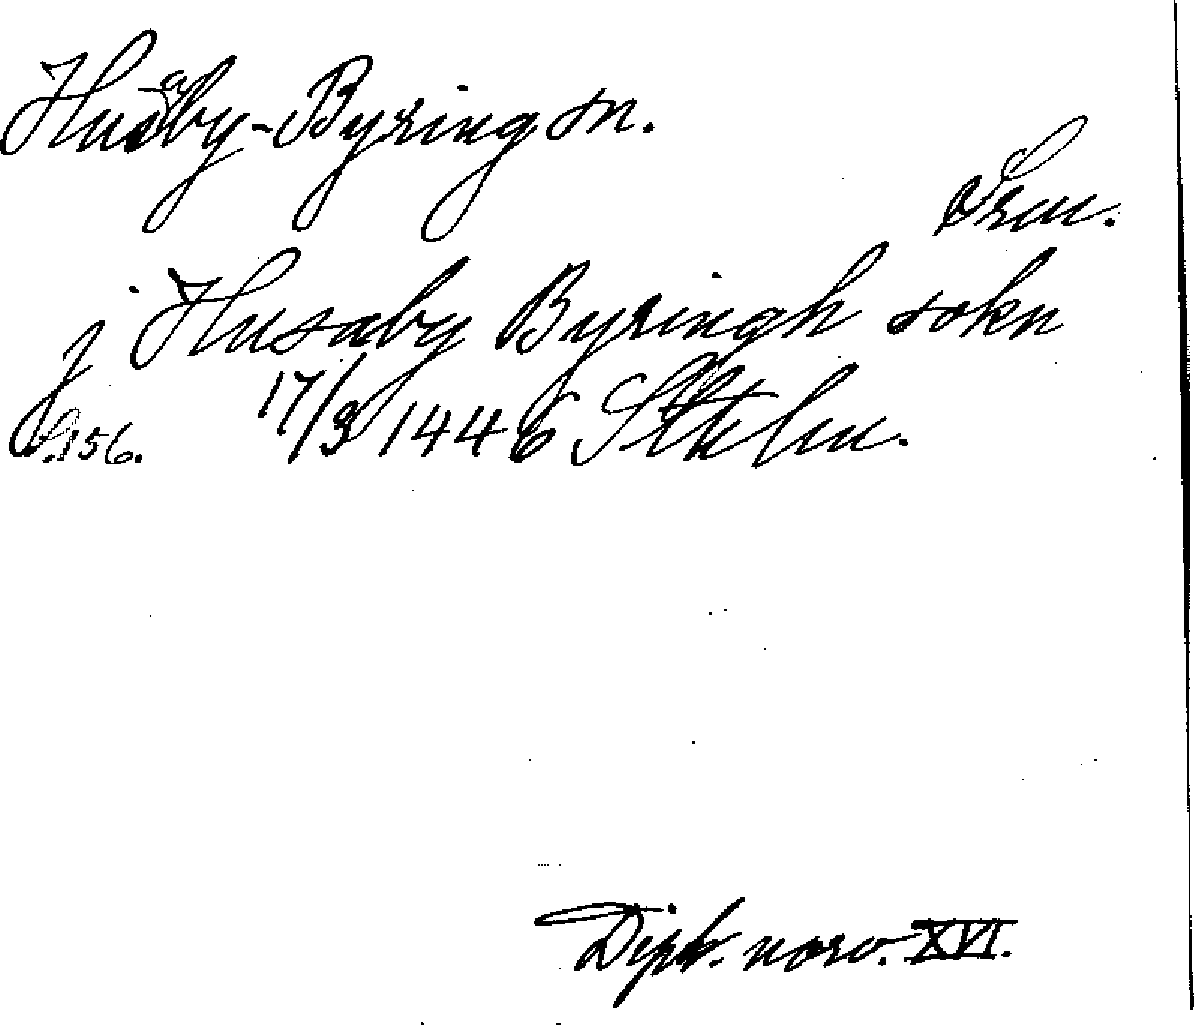 Husaby-Byring sn.
Srm.
j Husaby Byringh sokn
S.156. 17/3 1446 Sthlm.
Dipl. norv. XVI.